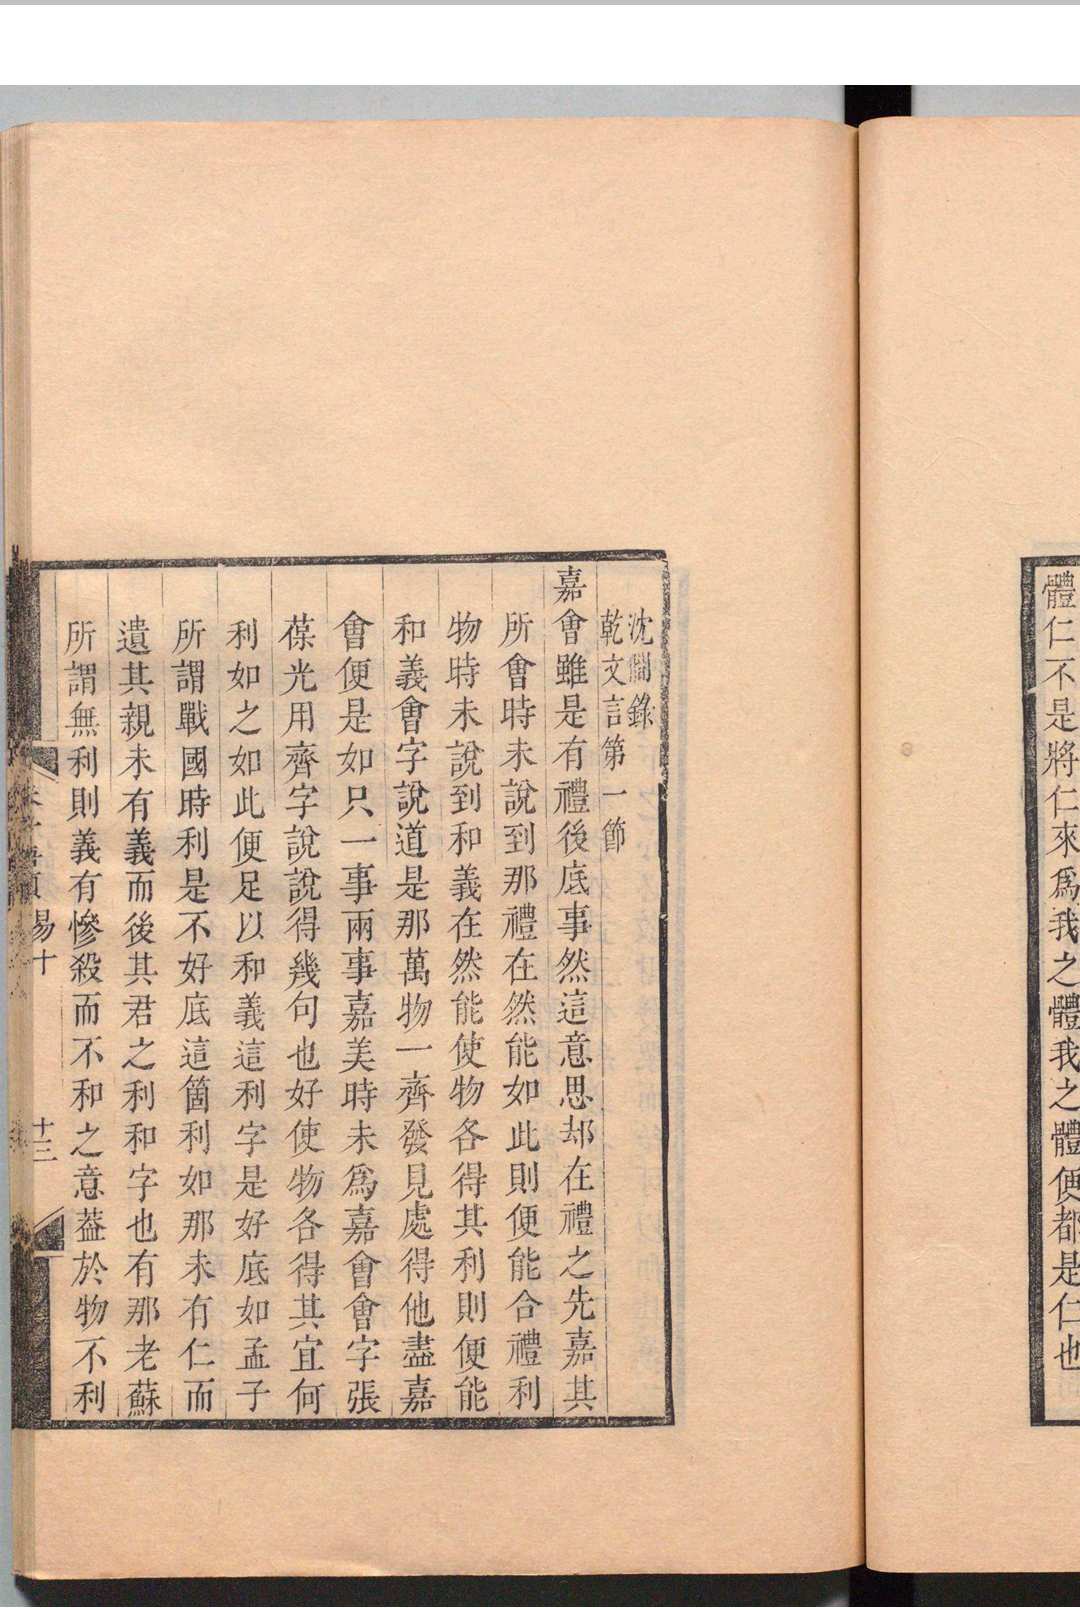 體仁不是將仁來爲我之體我之體便都是仁也
沈僩錄
乾文言第一節
嘉會雖是有禮後底事然這意思却在禮之先嘉其
所會時未說到那禮在然能如此則便能合禮利
物時未說到和義在然能使物各得其利則便能
和義會字說道是那萬物一齊發見處得他盡嘉
會便是如只一事兩事嘉美時未爲嘉會會字張
葆光用齊字說說得幾句也好使物各得其宜何
利如之如此便足以和義這利字是好底如孟子
所謂戰國時利是不好底這箇利如那未有仁而
遺其親未有義而後其君之利和字也有那老蘇
所謂無利則義有慘殺而不和之意葢於物不利
易十
十三